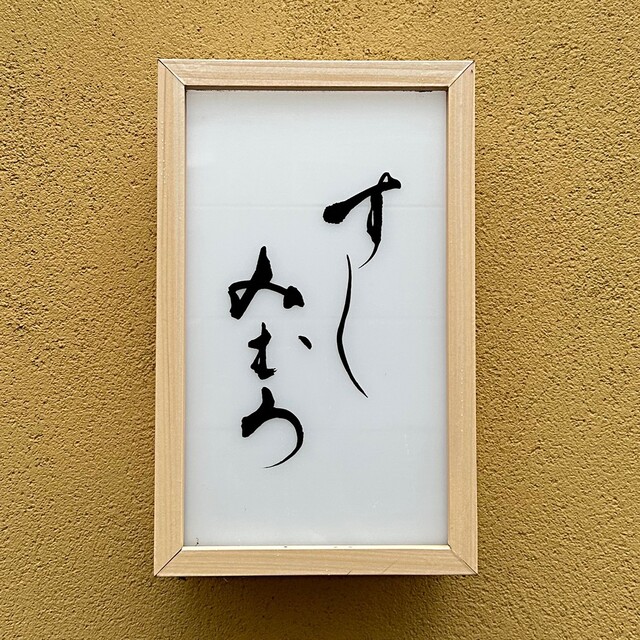 すし
みむろ